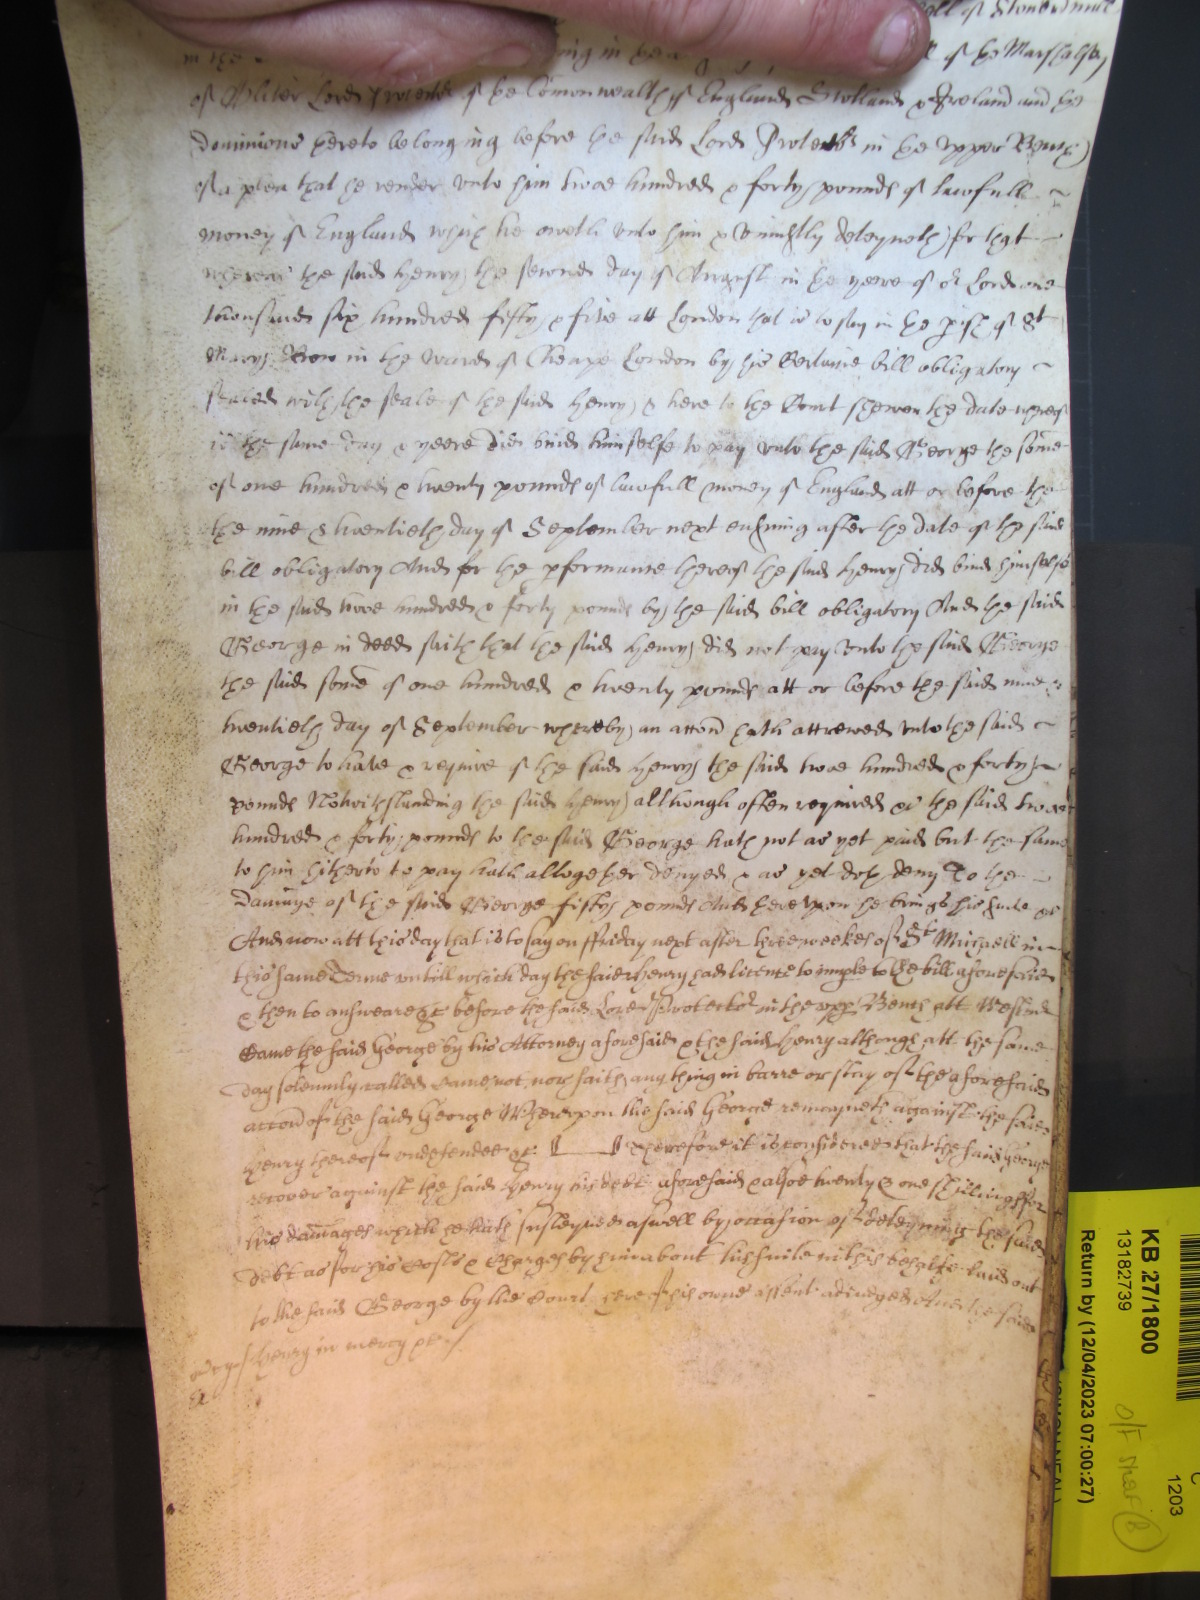 of Stoner
in the ing in the of the Marshalsey
of Oliver Lord Protector of the Comonwealth of England Scotland & Ireland and the
dominions thereto belonging before the said Lord Protector in the upper Bench
of a plea that he render unto him twoe hundred & forty pounds of lawfull
money of England which he oweth unto him & uniustly deteyneth for that
whereas the said Henry the second day of August in the yeere of or Lord one
thousand six hundred fifty & five att London that is to say in the pish of St
Mary Bow in the Ward of Cheape London by his Certaine bill obligatory
sealed with the seale of the said Henry & here to the Court shewen the date whereof
is the same day & yeere did bind himselfe to pay unto the said George the some
of one hundred & twenty pounds of lawfull money of England att or before the
the nine & twentieth day of September next ensuing after the date of the said
bill obligatory And for the pformance thereof the said Henry did bind himselfe
in the said twoe hundred & forty pounds by the said bill obligatory And the said
George in deed saith that the said Henry did not pay unto the said George
the said some of one hundred & twenty pounds att or before the said nine &
twentieth day of September whereby an accon hath accrewed unto the said
George to have & require of the said Henry the said twoe hundred & forty
pounds Notwithstanding the said Henry although often required &c the said twoe
hundred & forty pounds to the said George hath not as yet paid but the same
to him hitherto to pay hath alltogether denyed & as yet doth deny To the
damage of the said George fifty pounds And thereupon he brings his suite &c
And now att this day that is to say on ffriday next after three weekes of St Michaell in
this same Terme untill which day the said Henry had licence to imple to the bill aforesaid
& then to answeare &c before the said Lord Protector in the upp Bench att Westmr
Came the said George by his Attorney aforesaid & the said Henry although att the same
day solemnly called came not nor saith any thing in barre or stay of the aforesaid
accon of the said George Whereupon the said George remayneth against the said
Henry thereof undefended &c Therefore it is considered that the said George
recover against the said Henry his debt aforesaid & alsoe twenty & one shillings for
his damages which he hath susteyned aswell by occasion of deteyning the said
debt as for his costs & charges by him about his suite in this behalfe laid out
to the said George by the Court here of his owne assent adiudged And the said
Henry in mercy &c
KB 27/1800
13182739
Return by (12/04/2023 07:00:27)
1203